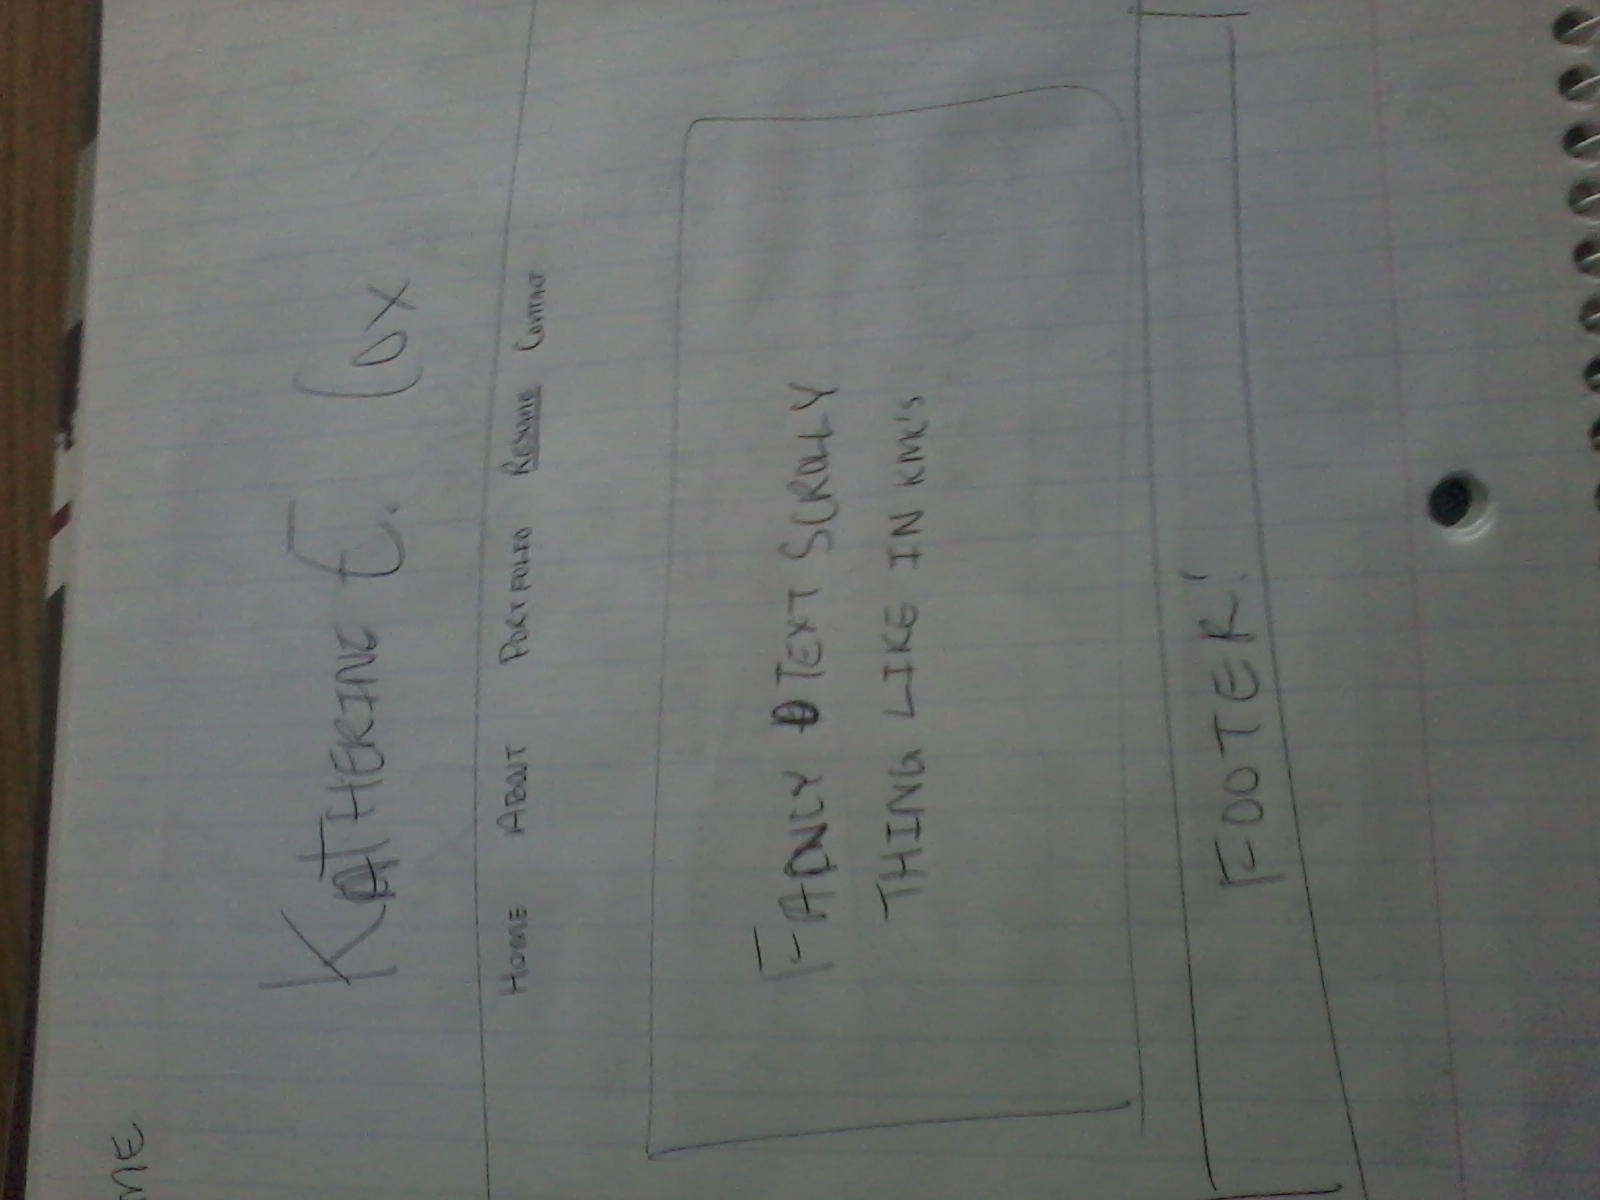 ME
KATHERINE E. COX
HOME ABOUT PORTFOLIO RESUME CONTACT
FANCY TEXT SCROLLY
THING LIKE IN KMC'S
FOOTER!